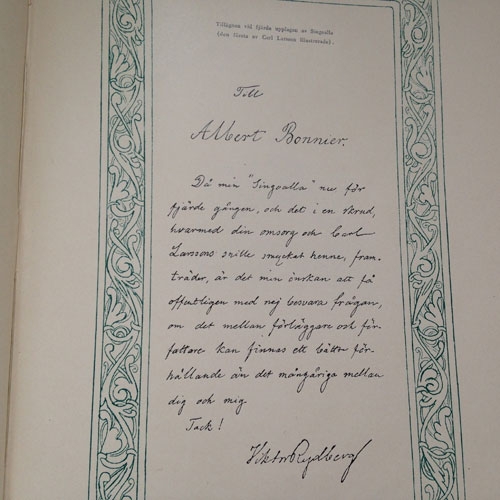 Tillägnan vid fjärde upplagan av Singoalla
(den första av Carl Larsson illustrerade).
Till
Albert Bonnier.
Då min "Singoalla" nu, för
fjärde gången, och det i en skrud,
hvarmed din omsorg och Carl
Larssons snille smycket henne, fram-
träder, är det min önskan att få
offentligen med nej besvara frågan,
om det mellan förläggare och för-
fattare kan finnas ett bättre för-
hållande än det mångåriga mellan
dig och mig
Tack!
Viktor Rydberg